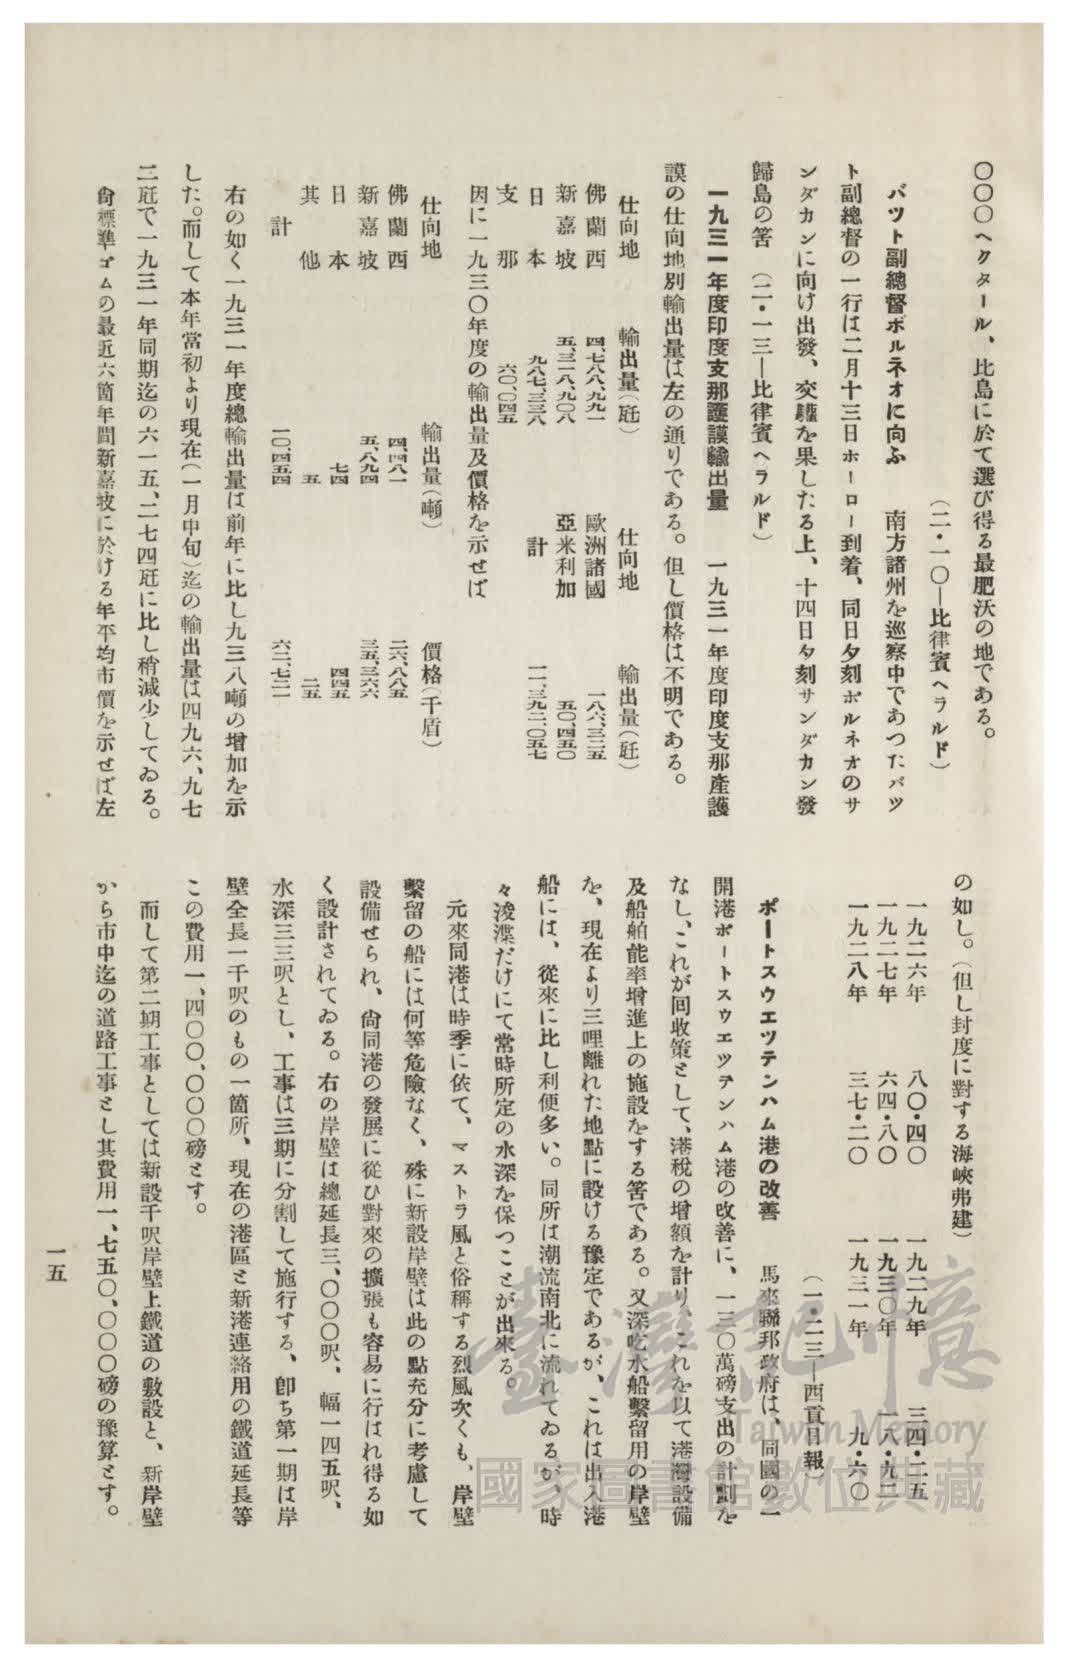 〇〇〇ヘクタール、比島に於て選び得る最肥沃の地である。
（二・一〇―比律賓ヘラルド）
バツト副總督ボルネオに向ふ　南方諸州を巡察中であつたバツ
ト副總督の一行は二月十三日ホーロー到着、同日夕刻ボルネオのサ
ンダカンに向け出發、交驩を果したる上、十四日夕刻サンダカン發
歸島の筈　（二・一三―比律賓ヘラルド）
一九三一年度印度支那護謨輸出量　一九三一年度印度支那產護
謨の仕向地別輸出量は左の通りである。但し價格は不明である。
仕向地　輸出量（瓩）　仕向地　輸出量（瓩）
佛蘭西　四、七八八、九九一　歐洲諸國　一八六、三二五
新嘉坡　五、三一八、九〇八　亞米利加　五〇、四五〇
日本　九八七、三三八　計　一一、三九二、〇五七
支那　六〇、〇四五
因に一九三〇年度の輸出量及價格を示せば
仕向地　輸出量（噸）　價格（千盾）
佛蘭西　四、四八一　二六、八八五
新嘉坡　五、八九四　三五、三六六
日本　七四　四四五
其他　五　二五
計　一〇、四五四　六二、七二一
右の如く一九三一年度總輸出量は前年に比し九三八噸の增加を示
した。而して本年當初より現在（一月中旬）迄の輸出量は四九六、九七
二瓩で一九三一年同期迄の六一五、二七四瓩に比し稍減少してゐる。
尙標準ゴムの最近六箇年間新嘉坡に於ける年平均市價を示せば左
の如し。（但し封度に對する海峽弗建）
一九二六年　八〇・四〇　一九二九年　三四・二五
一九二七年　六四・八〇　一九三〇年　一八・九二
一九二八年　三七・二〇　一九三一年　九・六〇
（一・二三―西貢日報）
ポートスウエツテンハム港の改善　馬來聯邦政府は、同國の一
開港ポートスウエツテンハム港の改善に、一三〇萬磅支出の計劃を
なし、これが回收策として、港稅の增額を計り、これを以て港灣設備
及船舶能率增進上の施設をする筈である。又深吃水船繫留用の岸壁
を、現在より三哩離れた地點に設ける豫定であるが、これは出入港
船には、從來に比し利便多い。同所は潮流南北に流れてゐるが、時
々浚渫だけにて常時所定の水深を保つことが出來る。
元來同港は時季に依て、マストラ風と俗稱する烈風吹くも、岸壁
繫留の船には何等危險なく、殊に新設岸壁は此の點充分に考慮して
設備せられ、尙同港の發展に從ひ對來の擴張も容易に行はれ得る如
く設計されてゐる。右の岸壁は總延長三、〇〇〇呎、幅一四五呎、
水深三三呎とし、工事は三期に分割して施行する、卽ち第一期は岸
壁全長一千呎のもの一箇所、現在の港區と新港連絡用の鐵道延長等
この費用一、四〇〇、〇〇〇磅とす。
而して第二期工事としては新設千呎岸壁上鐵道の敷設と、新岸壁
から市中迄の道路工事とし其費用一、七五〇、〇〇〇磅の豫算とす。
一五
臺灣記憶
Taiwan Memory
國家圖書館數位典藏